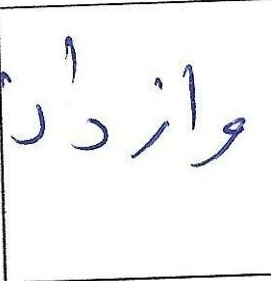 وازدادت